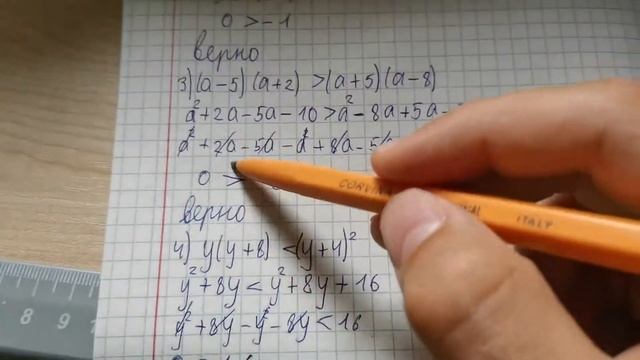 0 > -1
верно
3) (a-5) (a+2) > (a+5) (a-8)
a²+2a-5a-10 > a²-8a+5a-
a²+2a-5a-a²+8a-5
0 >
верно
4) y(y+8) < (y+4)²
y²+8y < y²+8y+16
y²+8y-y²-8y < 16
CORVINA
ITALY
8 9